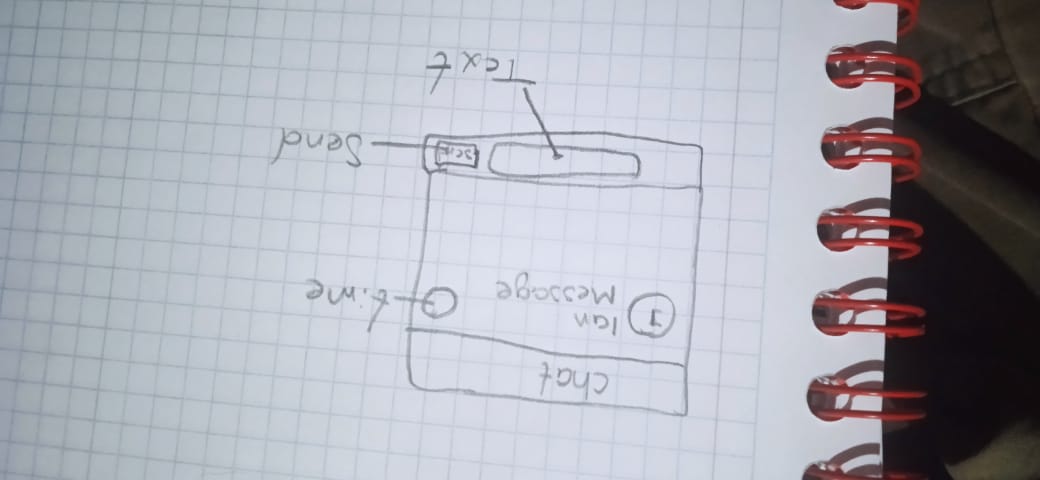 chat
I
Ian
Message
time
Send
Text